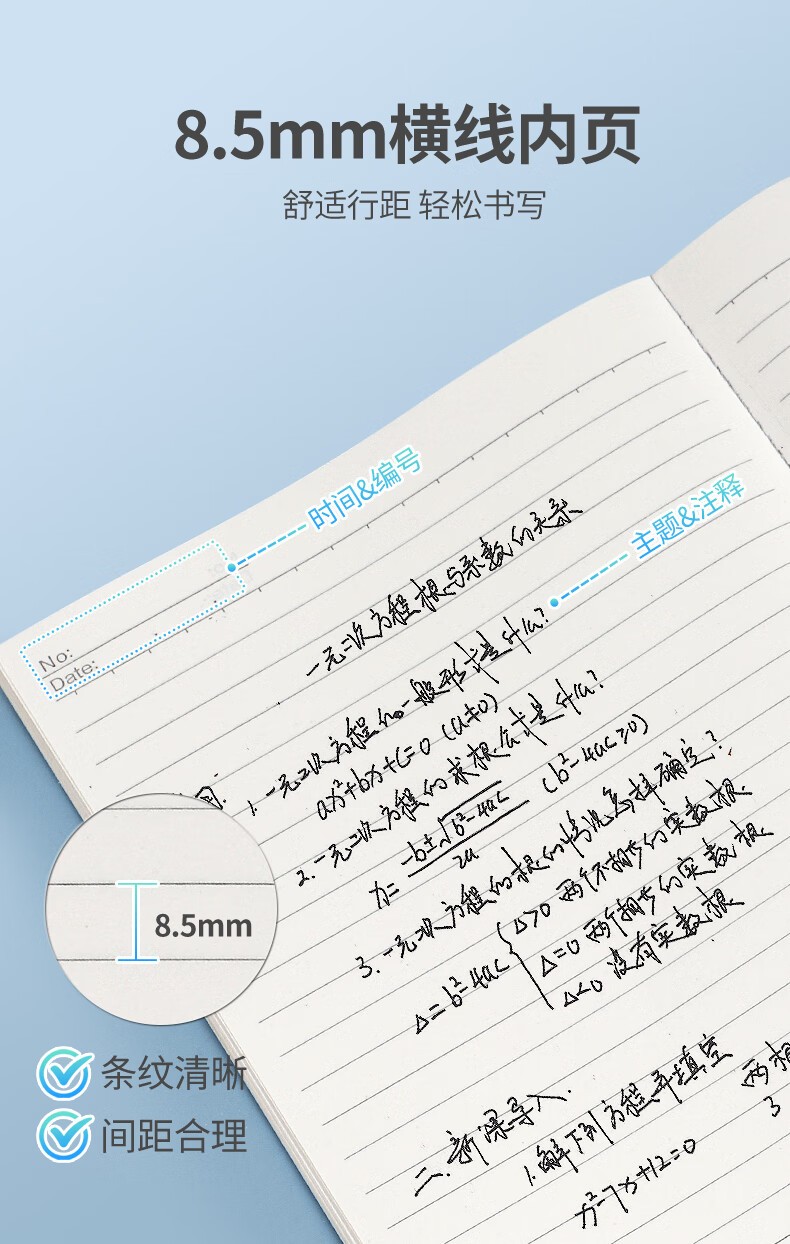 8.5mm横线内页
舒适行距 轻松书写
时间&编号
主题&注释
No:
Date:
一元二次方程根与系数的关系
1.一元二次方程的一般形式是什么?
ax²+bx+c=0 (a≠0)
2.一元二次方程的求根公式是什么?
x= -b±√b²-4ac / 2a (b²-4ac≥0)
3.一元二次方程的根的情况怎样确定?
Δ=b²-4ac { Δ>0 两个不相等的实数根
Δ=0 两个相等的实数根
Δ<0 没有实数根
二、新课导入.
1.解下列方程并填空
x²-7x+12=0
两根
3
8.5mm
条纹清晰
间距合理